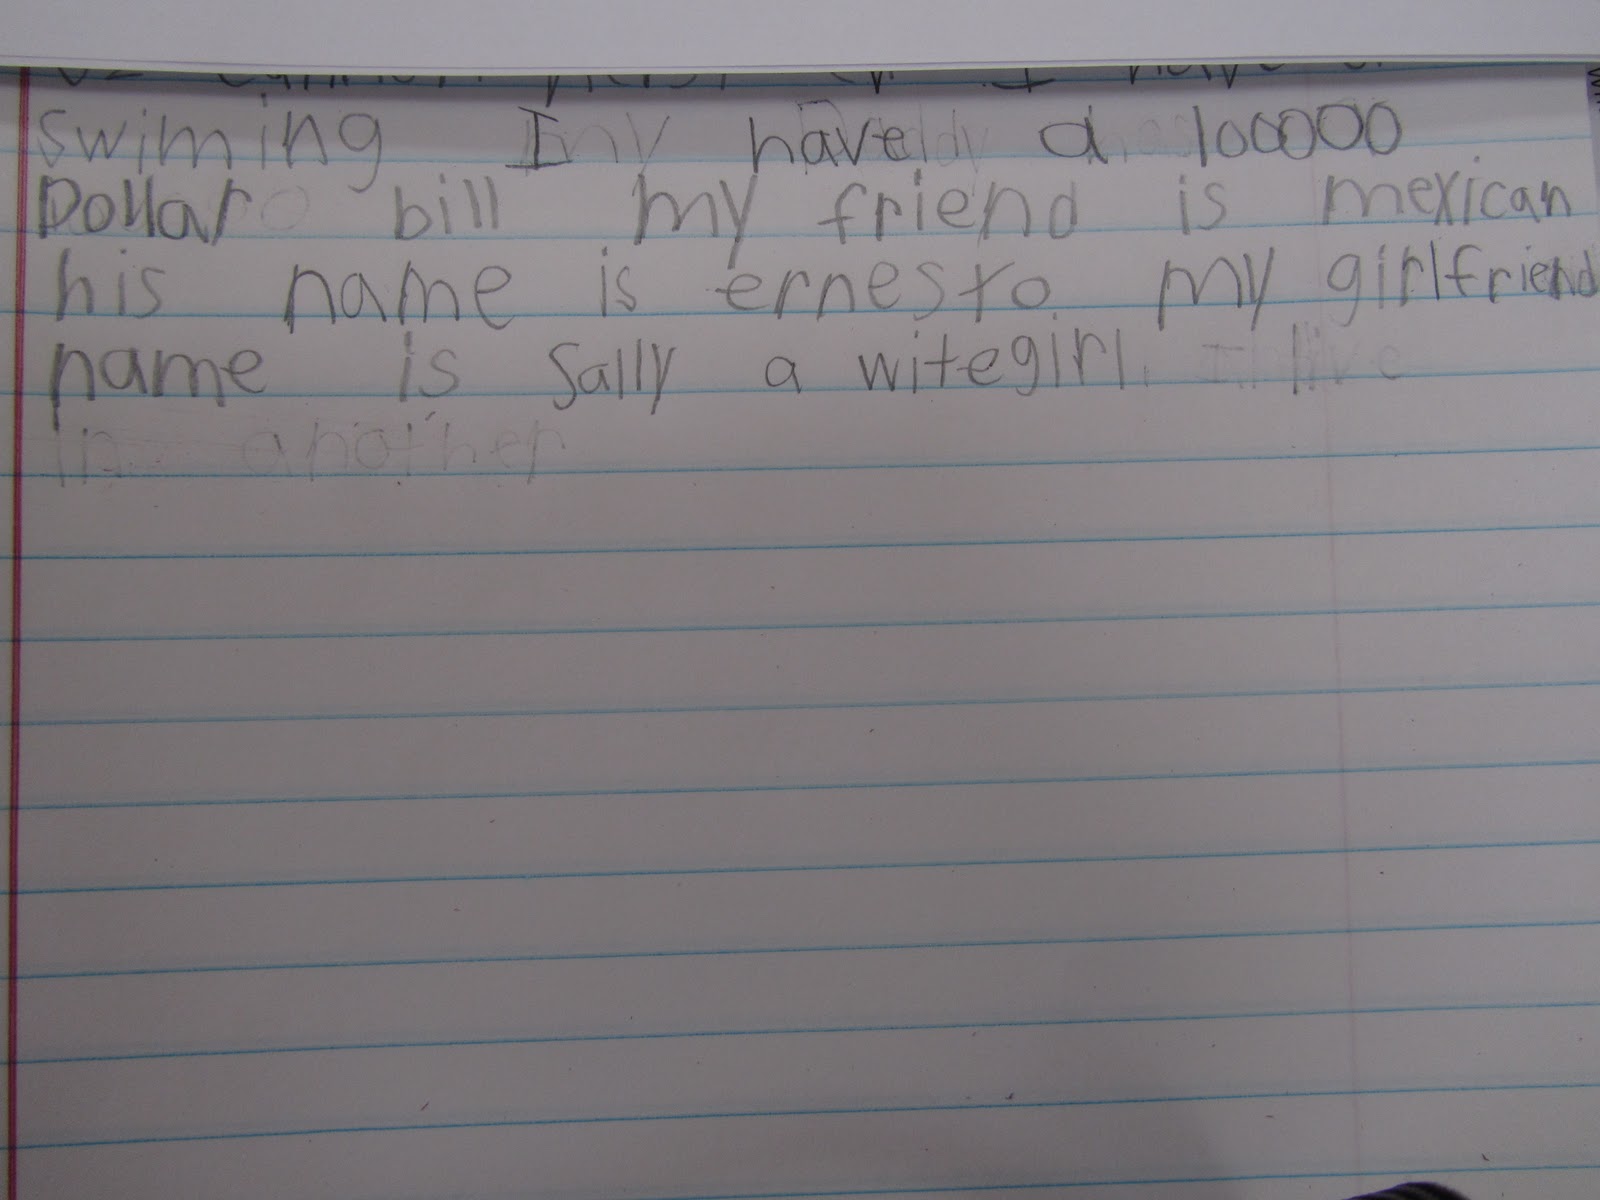 swiming I have a 100000
Dollar bill my friend is mexican
his name is ernesto my girlfriend
name is Sally a witegirl. I live
in another